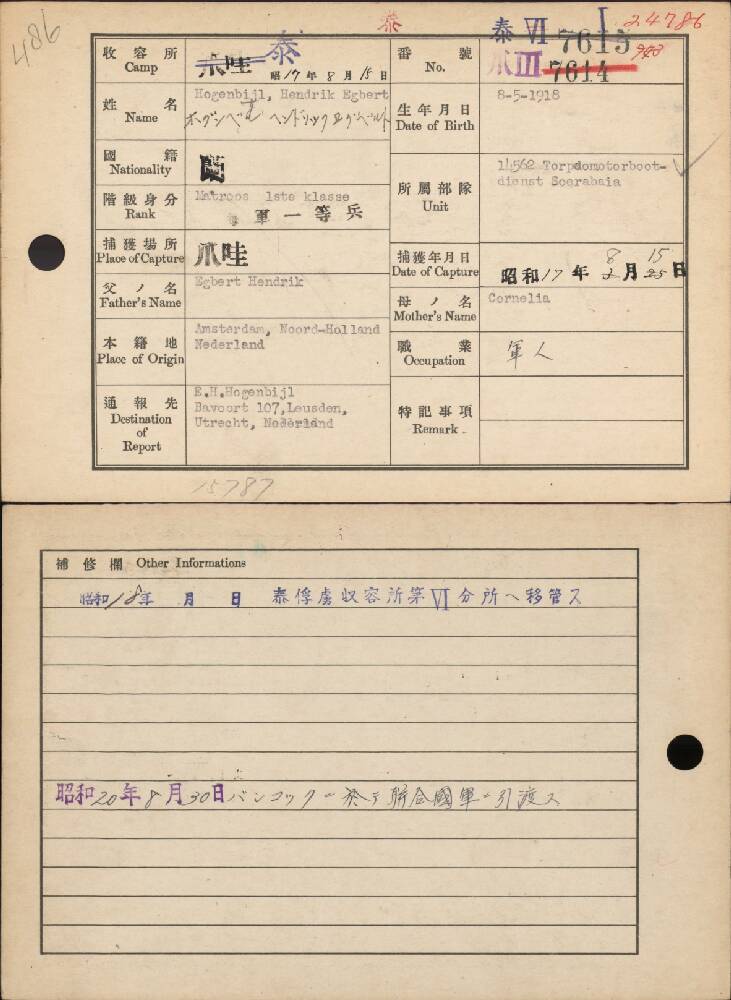 486
泰
泰 VI I 24786
7615
爪 III 7614
收容所 Camp
爪哇 泰
昭17年8月15日
番號 No.
姓名 Name
Hogenbijl, Hendrik Egbert
生年月日 Date of Birth
8-5-1918
國籍 Nationality
蘭
所屬部隊 Unit
14562 Torpdomotorboot-
dienst Soerabaia
階級身分 Rank
Matroos 1ste klasse
軍一等兵
捕獲場所 Place of Capture
爪哇
捕獲年月日 Date of Capture
昭和17年8月15日
父ノ名 Father's Name
Egbert Hendrik
母ノ名 Mother's Name
Cornelia
本籍地 Place of Origin
Amsterdam, Noord-Holland
Nederland
職業 Occupation
軍人
通報先 Destination of Report
E.H.Hogenbijl
Bavoort 107,Leusden,
Utrecht, Nederland
特記事項 Remark
15787
補修欄 Other Informations
昭和18年 月 日 泰俘虜収容所第VI分所ヘ移管ス
昭和20年8月30日バンコックニ於テ聯合國軍ニ引渡ス